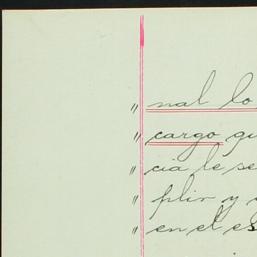 " nal lo
" cargo qu
" cia le se
" plir y
" en el es